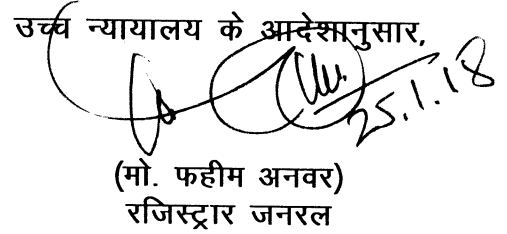 उच्च न्यायालय के आदेशानुसार,
25.1.18
(मो. फहीम अनवर)
रजिस्ट्रार जनरल